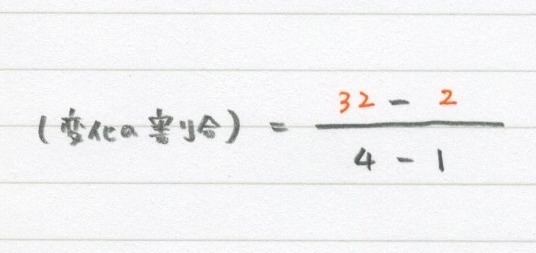 (変化の割合) = \frac{32 - 2}{4 - 1}